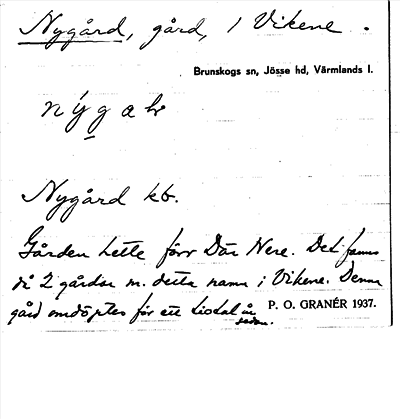 Nygård, gård, i Vikene.
Brunskogs sn, Jösse hd, Värmlands l.
nýga
Nygård kb.
Gården hette förr Där Nere. Det fanns
då 2 gårdar m. detta namn i Vikene. Denna
gård omdöptes för ett tiotal år
sedan.
P. O. GRANÉR 1937.